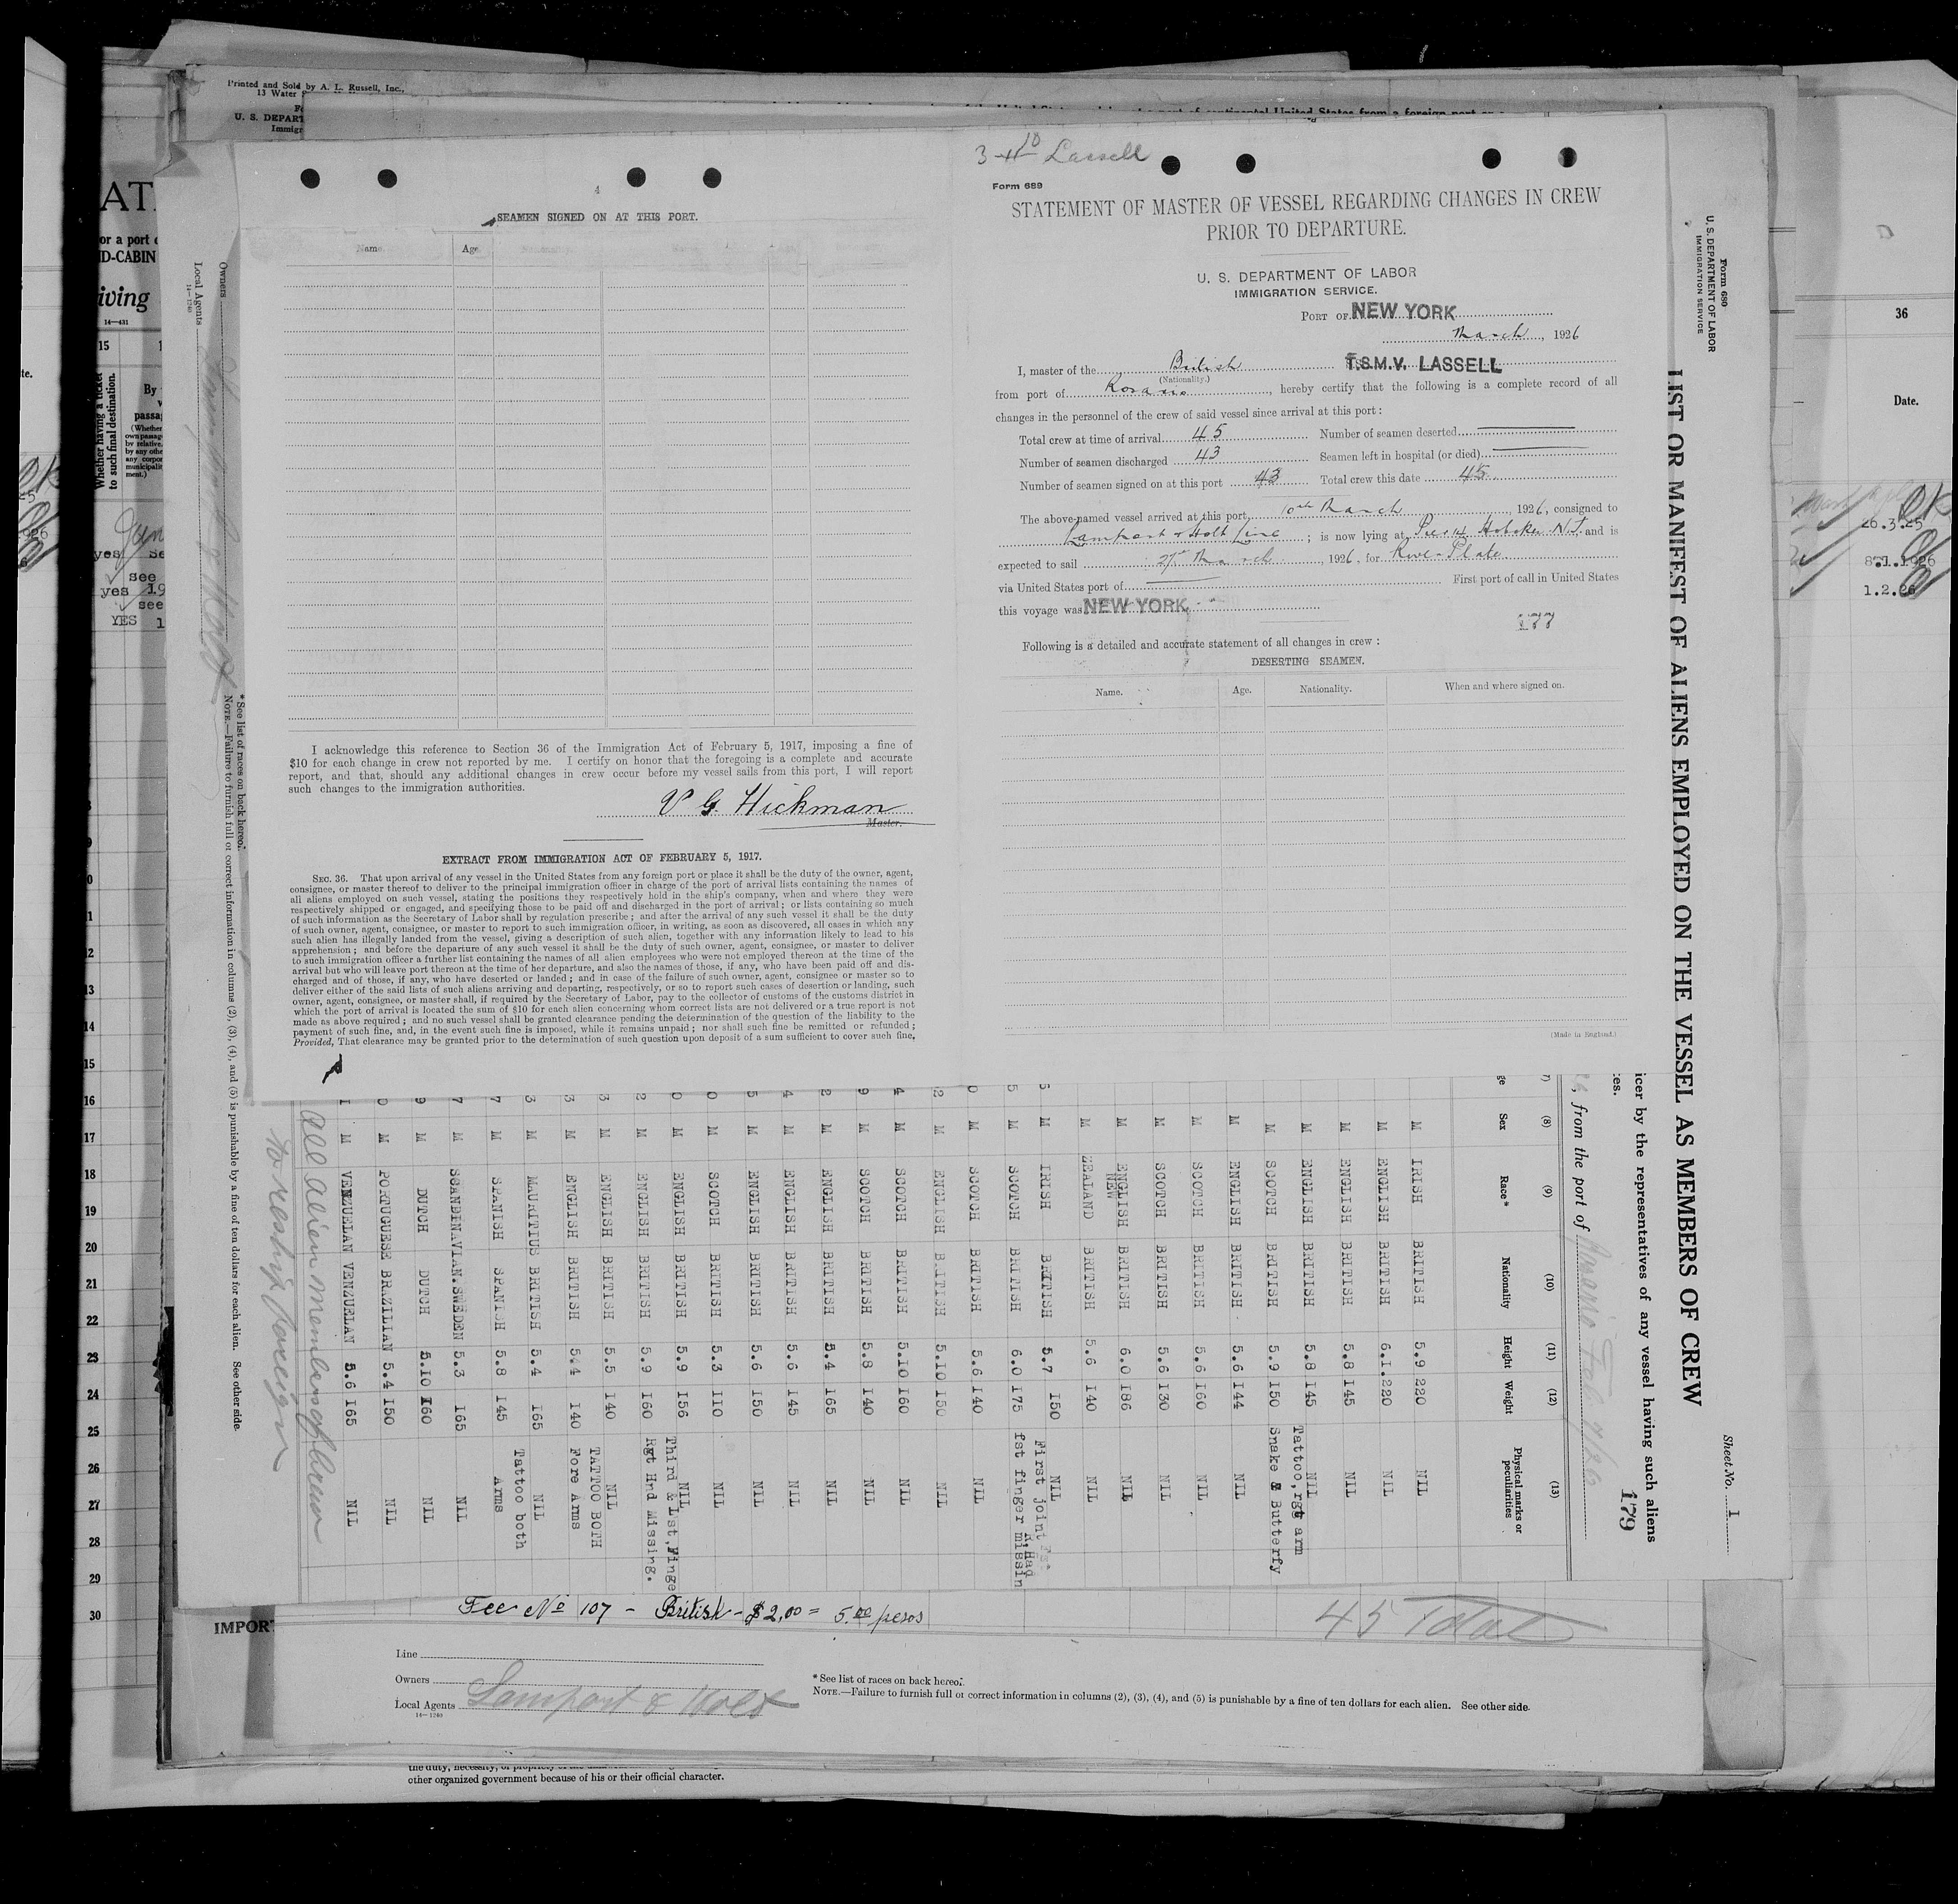 Printed and Sold by A. L. Russell, Inc.,
13 Water
U. S. DEPART
Immigr
4
SEAMEN SIGNED ON AT THIS PORT.
Name. Age.
I acknowledge this reference to Section 36 of the Immigration Act of February 5, 1917, imposing a fine of
$10 for each change in crew not reported by me. I certify on honor that the foregoing is a complete and accurate
report, and that, should any additional changes in crew occur before my vessel sails from this port, I will report
such changes to the immigration authorities.
V G Hickman
Master.
EXTRACT FROM IMMIGRATION ACT OF FEBRUARY 5, 1917.
SEC. 36. That upon arrival of any vessel in the United States from any foreign port or place it shall be the duty of the owner, agent,
consignee, or master thereof to deliver to the principal immigration officer in charge of the port of arrival lists containing the names of
all aliens employed on such vessel, stating the positions they respectively hold in the ship's company, when and where they were
respectively shipped or engaged, and specifying those to be paid off and discharged in the port of arrival; or lists containing so much
of such information as the Secretary of Labor shall by regulation prescribe; and after the arrival of any such vessel it shall be the duty
of such owner, agent, consignee, or master to report to such immigration officer, in writing, as soon as discovered, all cases in which any
such alien has illegally landed from the vessel, giving a description of such alien, together with any information likely to lead to his
apprehension; and before the departure of any such vessel it shall be the duty of such owner, agent, consignee, or master to deliver
to such immigration officer a further list containing the names of all alien employees who were not employed thereon at the time of the
arrival but who will leave port thereon at the time of her departure, and also the names of those, if any, who have been paid off and dis-
charged and of those, if any, who have deserted or landed; and in case of the failure of such owner, agent, consignee or master so to
deliver either of the said lists of such aliens arriving and departing, respectively, or so to report such cases of desertion or landing, such
owner, agent, consignee, or master shall, if required by the Secretary of Labor, pay to the collector of customs of the customs district in
which the port of arrival is located the sum of $10 for each alien concerning whom correct lists are not delivered or a true report is not
made as above required; and no such vessel shall be granted clearance pending the determination of the question of the liability to the
payment of such fine, and, in the event such fine is imposed, while it remains unpaid; nor shall such fine be remitted or refunded;
Provided, That clearance may be granted prior to the determination of such question upon deposit of a sum sufficient to cover such fine,
Lassell
Form 689
STATEMENT OF MASTER OF VESSEL REGARDING CHANGES IN CREW
PRIOR TO DEPARTURE.
U. S. DEPARTMENT OF LABOR
IMMIGRATION SERVICE.
PORT OF NEW YORK
March, 1926
I, master of the British T.S.M.V. LASSELL
(Nationality.)
from port of Rosario, hereby certify that the following is a complete record of all
changes in the personnel of the crew of said vessel since arrival at this port:
Total crew at time of arrival 45 Number of seamen deserted
Number of seamen discharged 43 Seamen left in hospital (or died)
Number of seamen signed on at this port 43 Total crew this date 45
The above-named vessel arrived at this port 10th March, 1926, consigned to
Lamport & Holt Line; is now lying at Hoboken N.J. and is
expected to sail 27th March, 1926, for River Plate
via United States port of First port of call in United States
this voyage was NEW YORK
177
Following is a detailed and accurate statement of all changes in crew:
DESERTING SEAMEN.
Name. Age. Nationality. When and where signed on.
(Made in England.)
Form 680
U. S. DEPARTMENT OF LABOR
IMMIGRATION SERVICE
LIST OR MANIFEST OF ALIENS EMPLOYED ON THE VESSEL AS MEMBERS OF CREW
Sheet No. 1
icer by the representatives of any vessel having such aliens
179
, from the port of Rosario Feb
(8) (9) (10) (11) (12) (13)
Sex Race* Nationality Height Weight Physical marks or peculiarities
M IRISH BRITISH 5.9 220 NIL
M ENGLISH BRITISH 6.1. 220 NIL
M ENGLISH BRITISH 5.8 145 NIL
M ENGLISH BRITISH 5.8 145 NIL
M SCOTCH BRITISH 5.9 150 Tattoo, rgt arm Snake & Butterfy
M ENGLISH BRITISH 5.6 144 NIL
M SCOTCH BRITISH 5.6 160 NIL
M SCOTCH BRITISH 5.6 130 NIL
M ENGLISH BRITISH 6.0 186 NIL
M NEW ZEALAND BRITISH 5.6 140 NIL
M IRISH BRITISH 5.7 150 NIL
M SCOTCH BRITISH 6.0 175 First joint
fst finger missin
M SCOTCH BRITISH 5.6 140 NIL
M ENGLISH BRITISH 5.10 150 NIL
M SCOTCH BRITISH 5.10 160 NIL
M SCOTCH BRITISH 5.8 140 NIL
M ENGLISH BRITISH 5.4 165 NIL
M ENGLISH BRITISH 5.6 145 NIL
M ENGLISH BRITISH 5.6 150 NIL
M SCOTCH BRITISH 5.3 110 NIL
M ENGLISH BRITISH 5.9 156 NIL
M ENGLISH BRITISH 5.9 160 Third & Lst, Finge
Rgt Hnd Missing.
M ENGLISH BRITISH 5.5 140 NIL
M ENGLISH BRITISH 5.4 140 TATOO BOTH
Fore Arms
M MAURITIUS BRITISH 5.4 165 NIL
M SPANISH SPANISH 5.8 145 Tattoo both
Arms
M SCANDINAVIAN. SWEDEN 5.3 165 NIL
M DUTCH DUTCH 5.10 160 NIL
M PORTUGUESE BRAZILIAN 5.4 150 NIL
M VENZUELAN VENZUELAN 5.6 165 NIL
All alien members of crew
to reship foreign
Owners
Local Agents
14—1240
*See list of races on back hereof.
NOTE.—Failure to furnish full or correct information in columns (2), (3), (4), and (5) is punishable by a fine of ten dollars for each alien. See other side.
Fee No 107 - British - $2.00 = 5.00 pesos
45 Total
IMPOR
Line
Owners
Local Agents Lamport & Holt
14—1240
*See list of races on back hereof.
NOTE.—Failure to furnish full or correct information in columns (2), (3), (4), and (5) is punishable by a fine of ten dollars for each alien. See other side.
other organized government because of his or their official character.
or a port
D-CABIN
14—431
15
Whether having a ticket to such final destination.
By
passa
yes
see
yes 19
see
YES 1
13
14
15
16
17
18
19
20
21
22
23
24
25
26
27
28
29
30
36
Date.
26.3.25
8.1.1926
1.2.26